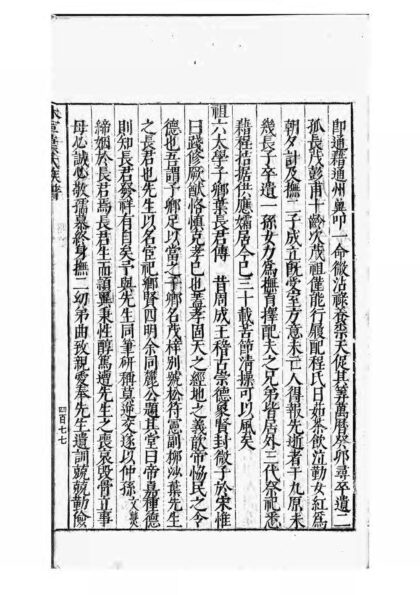 即通籍通州奧叩一命微沾祿養崇天促其算萬曆癸卯尋卒遺二
孤長茂彭甫十齡次茂祖僅能行履配程氏日茹荼飲泣勤女紅為
朝夕計及撫二子成立既愛室方意未亡人得報先逝者于九原未
幾長子卒遺一孫女力為撫育擇配夫之兄弟皆居外三代祭祀悉
藉程拮据供應孀居今已三十載苦節清操可以風矣
祖六太學子鄉葉長君傳 昔周成王稽古崇德象賢封微子於宋惟
曰踐修厥猷恪慎克孝已也蓋孝固天之經地之義歆帝恊民之令
德也吾謂子鄉足以當之子鄉名茂梓別號松符憲副柳沙葉先生
之長君也先生以名宦祀鄉賢四明余同麓公題其堂曰帝嘉種德
則知長君發祥有自矣予與先生同筆研稱莫逆交遂以仲孫文襲
締姻於長君焉長君生而穎異秉性醇篤遭先生之喪哀毀骨立事
母心誠心敬孺慕終身撫二幼弟曲致親愛奉先生遺訓兢兢勤儉
葉氏族譜
四百七七